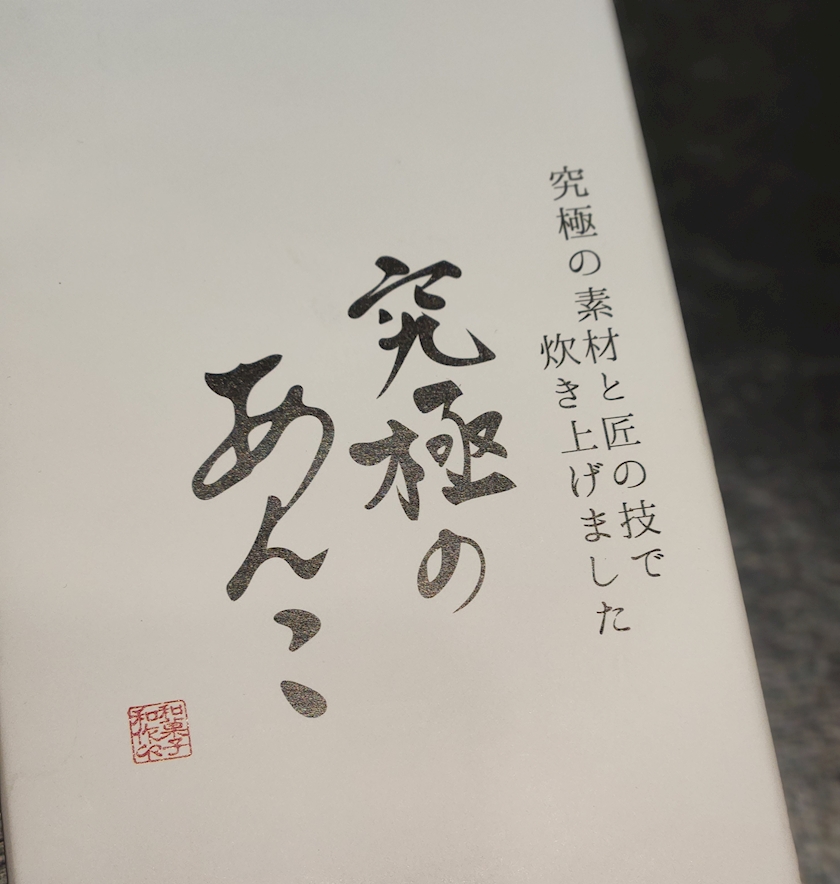 究極の素材と匠の技で
炊き上げました
究極の
あんこ
和菓子